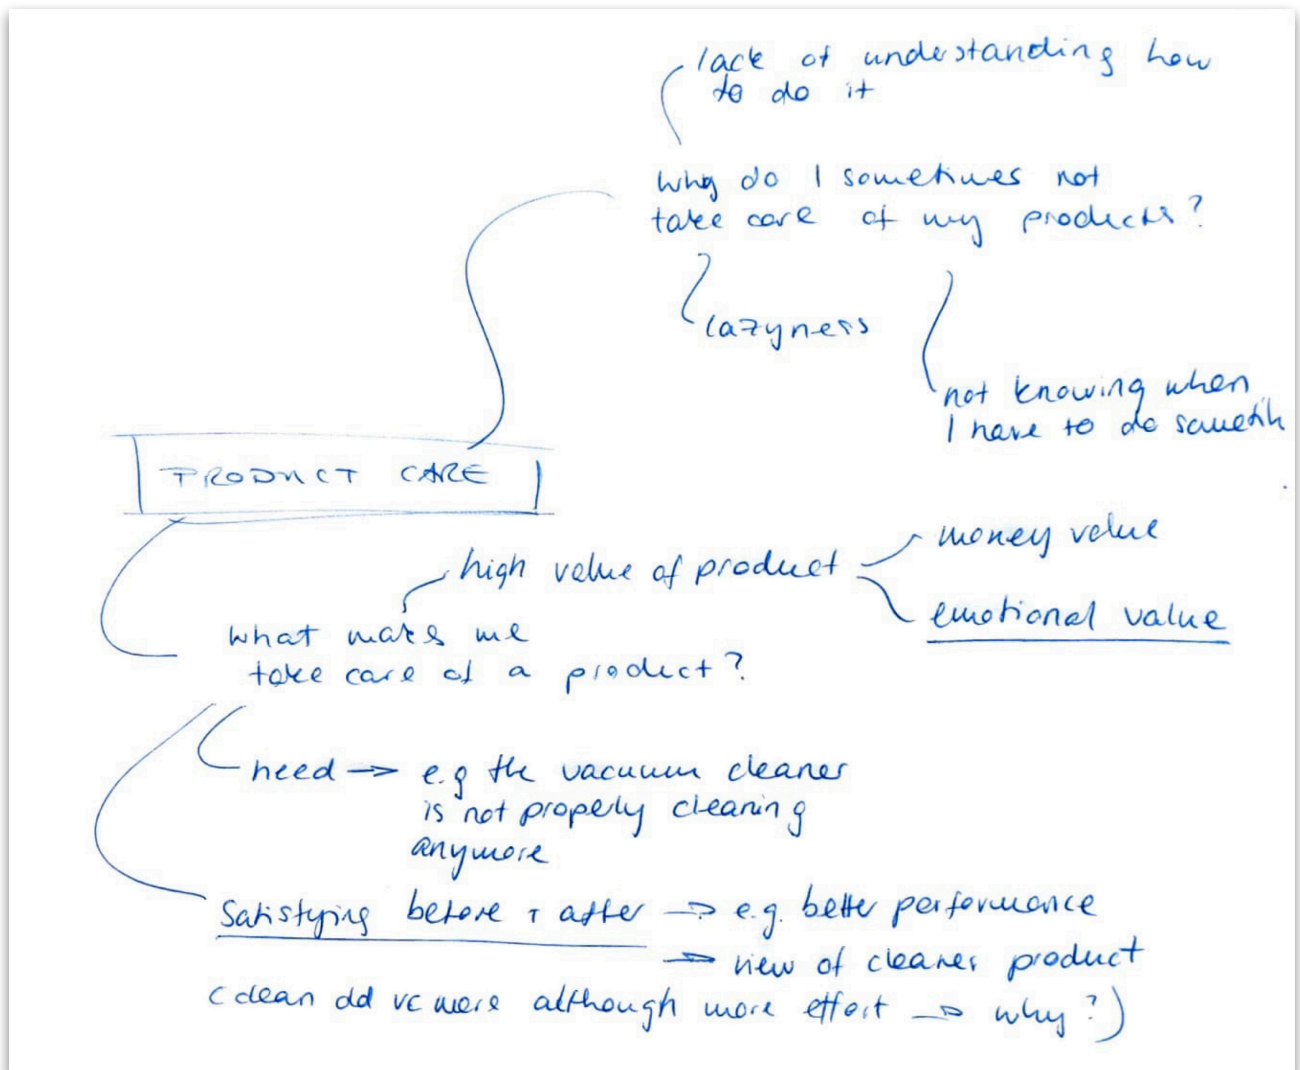 lack of understanding how
to do it
why do I sometimes not
take care of my products?
lazyness
not knowing when
I have to do sometih
PRODUCT CARE
high value of product
money value
emotional value
what makes me
take care of a product?
need → e.g the vacuum cleaner
is not properly cleaning
anymore
Satisfying before + after → e.g. better performance
→ view of cleaner product
(clean old vc more although more effort → why?)